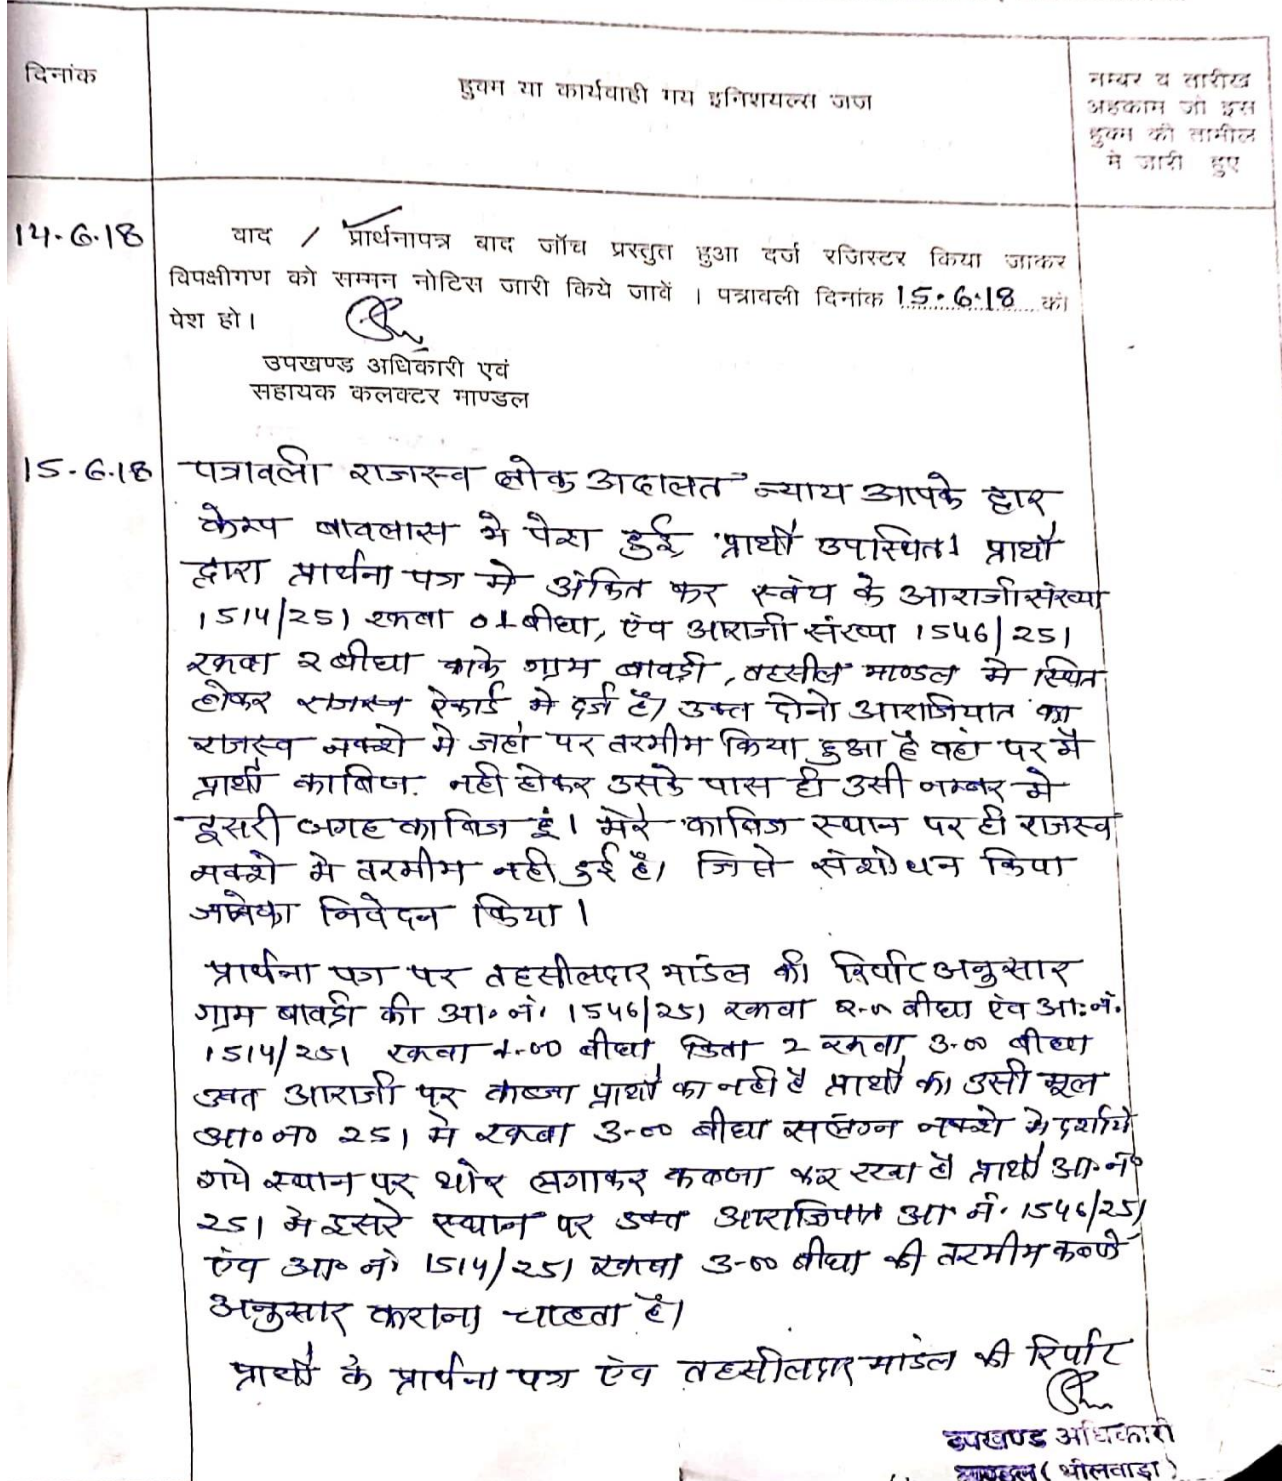 दिनांक
हुक्म या कार्यवाही मय इनिशयल्स जज
नम्बर व तारीख
अहकाम जो इस
हुक्म की तामील
मे जारी हुए
14.6.18
वाद / प्रार्थनापत्र बाद जॉच प्रस्तुत हुआ दर्ज रजिस्टर किया जाकर
विपक्षीगण को सम्मन नोटिस जारी किये जावें । पत्रावली दिनांक 15.6.18 को
पेश हो।
उपखण्ड अधिकारी एवं
सहायक कलक्टर माण्डल
15.6.18 पत्रावली राजस्व लोक अदालत न्याय आपके द्वार
केम्प बावलास मे पेश हुई प्रार्थी उपस्थित। प्रार्थी
द्वारा प्रार्थना पत्र मे अंकित कर स्वंय के आराजी संख्या
1514/251 रकबा 01 बीघा, एंव आराजी संख्या 1546/251
रकबा 2 बीघा वाके ग्राम बावडी, तहसील माण्डल मे स्थित
होकर राजस्व रेकार्ड मे दर्ज है। उक्त दोनो आराजियात का
राजस्व नक्शे मे जहां पर तरमीम किया हुआ है वहां पर मै
प्रार्थी काबिज नही होकर उसके पास ही उसी नम्बर मे
दूसरी जगह काबिज हूं। मेरे काबिज स्थान पर ही राजस्व
नक्शे मे तरमीम नही हुई है। जिसे संशोधन किया
जानेका निवेदन किया।
प्रार्थना पत्र पर तहसीलदार मांडल की रिर्पोट अनुसार
ग्राम बावडी की आ.नं. 1546/251 रकबा 2-00 बीघा एंव आ.नं.
1514/251 रकबा 1-00 बीघा किता 2 रकबा 3-00 बीघा
उक्त आराजी पर कब्जा प्रार्थी का नही है प्रार्थी की उसी मूल
आ०न० 251 मे रकबा 3-00 बीघा सलंग्न नक्शे मे दर्शाये
गये स्थान पर थोर लगाकर कब्जा कर रखा है प्रार्थी आ.नं०
251 मे दूसरे स्थान पर उक्त आराजियात आ नं. 1546/251
एंव आ० नं० 1514/251 रकबा 3-00 बीघा की तरमीम कब्जे
अनुसार कराना चाहता है।
प्रार्थी के प्रार्थना पत्र एंव तहसीलदार मांडल की रिर्पोट
उपखण्ड अधिकारी
माण्डल (भीलवाड़ा)